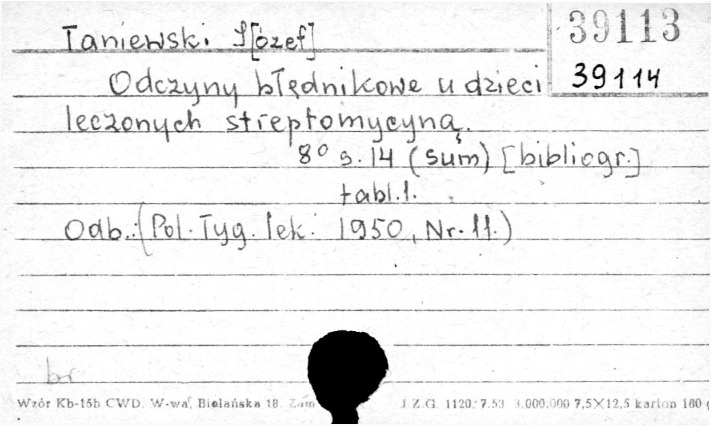 Taniewski J[ózef]
39113
39114
Odczyny błędnikowe u dzieci
leczonych streptomycyną.
8° s. 14 (sum) [bibliogr.]
tabl. 1.
Odb.: (Pol. Tyg. lek. 1950, Nr. 11.)
br
Wzór Kb-15b CWD. W-wa, Bielańska 18. Zam
J.Z.G. 1120, 7.53 3.000.000 7,5×12,5 karton 160